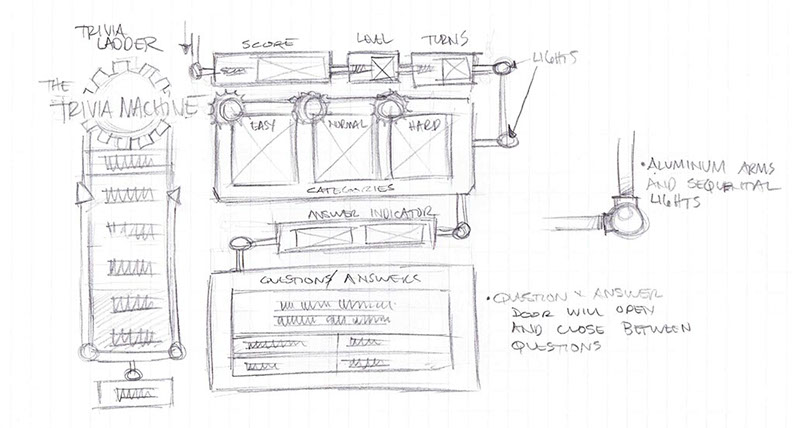 TRIVIA
LADDER
THE
TRIVIA MACHINE
SCORE
LEVEL
TURNS
LIGHTS
EASY
NORMAL
HARD
CATEGORIES
ANSWER INDICATOR
QUESTIONS/ANSWERS
• ALUMINUM ARMS
AND SEQUENTIAL
LIGHTS
• QUESTION & ANSWER
DOOR WILL OPEN
AND CLOSE BETWEEN
QUESTIONS